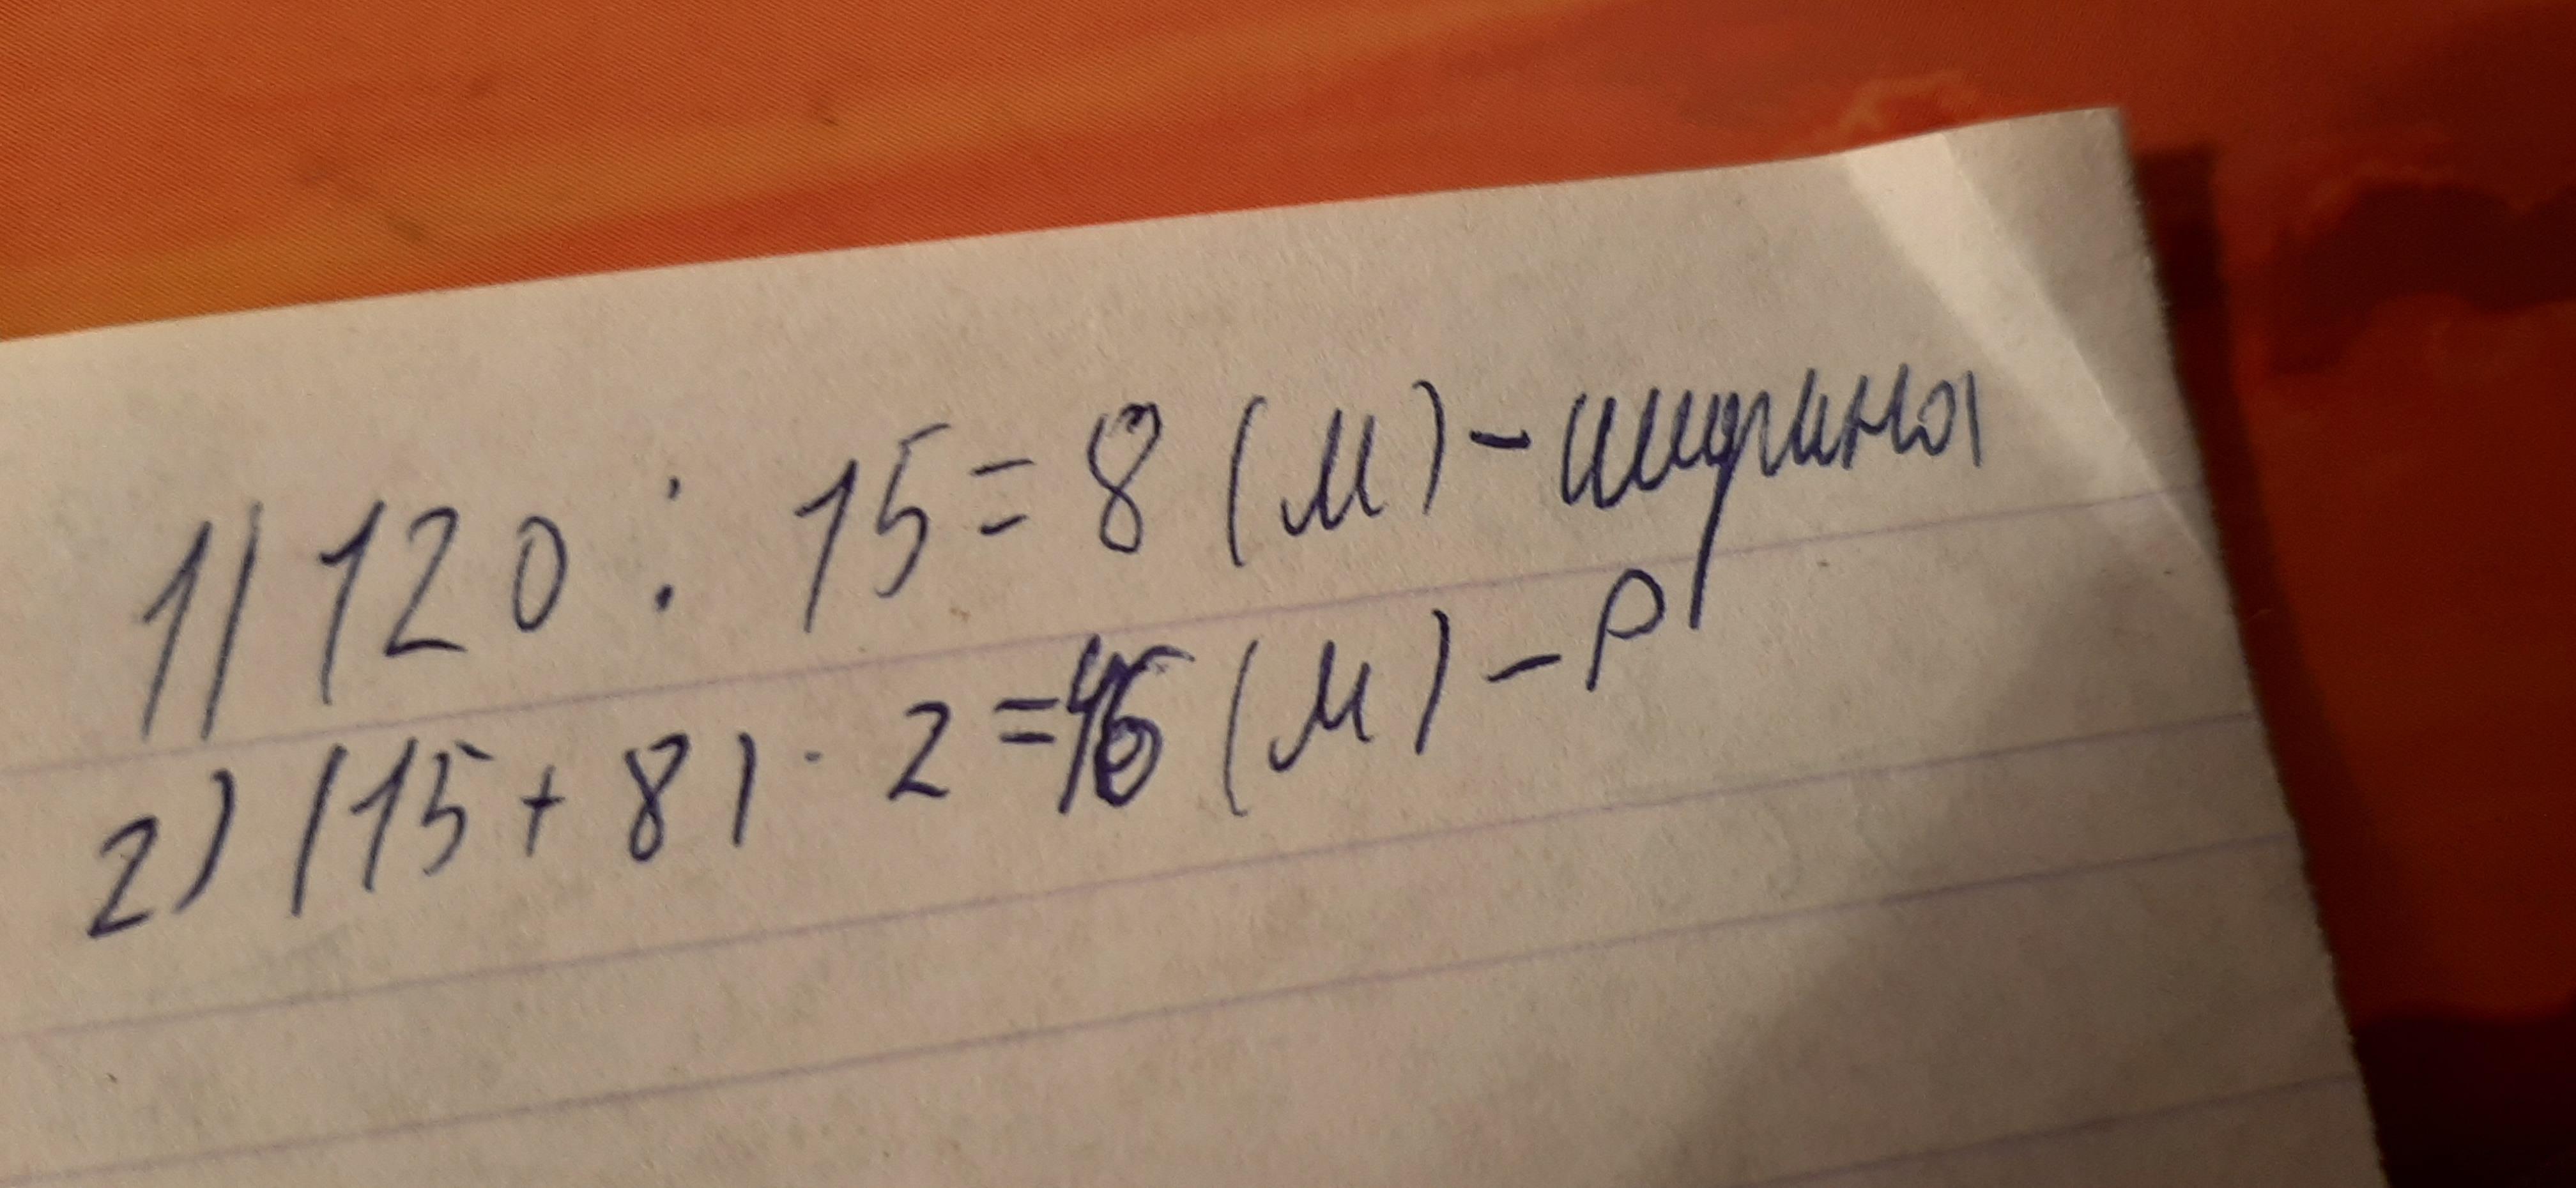 1) 120 : 15 = 8 (м) - ширина
2) (15 + 8) · 2 = 46 (м) - P